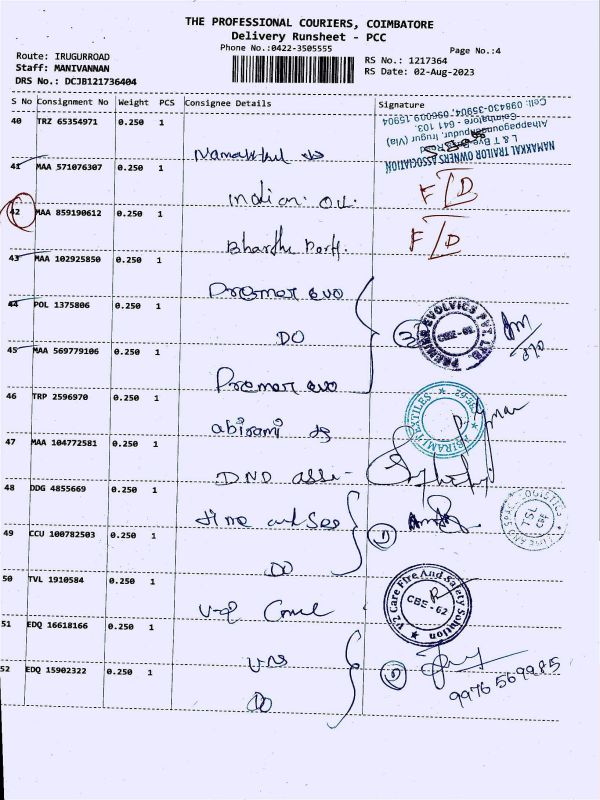 THE PROFESSIONAL COURIERS, COIMBATORE
Delivery Runsheet - PCC
Phone No.:0422-3505555
Page No.:4
Route: IRUGURROAD
RS No.: 1217364
Staff: MANIVANNAN
RS Date: 02-Aug-2023
DRS No.: DCJB121736404
S No Consignment No Weight PCS Consignee Details Signature
40 TRZ 65354971 0.250 1
NAMAKKAL TRAILOR OWNERS ASSOCIATION
L & T Bye Pass Road
Athappagoundenpudur, Irugur (Via)
Coimbatore - 641 103.
Cell: 098430-35904, 096009 15904
41 MAA 571076307 0.250 1
Indian oil
F/D
42 MAA 859190612 0.250 1
F/D
43 MAA 102925850 0.250 1
Premer evo
44 POL 1375806 0.250 1
DO
3
PREMIER EVOLVICS PVT LTD.
CBE-62
45 MAA 569779106 0.250 1
Premer evo
46 TRP 2596970 0.250 1
abirami
ABIRAMI TEXTILES
47 MAA 104772581 0.250 1
DND
48 DDG 4855669 0.250 1
time and
TSL
CBE
49 CCU 100782503 0.250 1
DO
50 TVL 1910584 0.250 1
V2 Care Fire And Safety Solution
CBE-62
51 EDQ 16618166 0.250 1
52 EDQ 15902322 0.250 1
DO